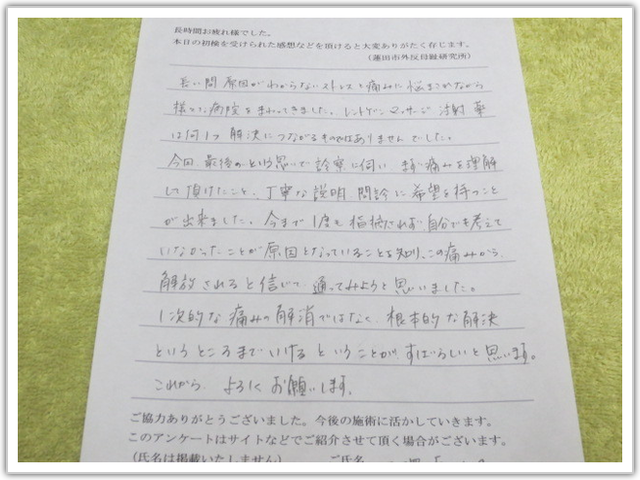 長時間お疲れ様でした。
本日の初検を受けられた感想などを頂けると大変ありがたく存じます。
(蓮田市外反母趾研究所)
長い間 原因がわからないストレスと痛みに悩まされながら
様々な病院をまわってきました。レントゲン マッサージ 注射 薬
は何1つ 解決につながるものではありませんでした。
今回 最後の という思いで診察に伺い まず痛みを理解
して頂けたこと、丁寧な説明 問診に希望を持つこと
が出来ました。今まで1度も指摘されず自分でも考えて
いなかったことが原因となっていることを知り、この痛みから
解放されると信じて 通ってみようと思いました。
1次的な痛みの解消ではなく、根本的な解決
というところまでいける ということが すばらしいと思います。
これから よろしくお願いします。
ご協力ありがとうございました。今後の施術に活かしていきます。
このアンケートはサイトなどでご紹介させて頂く場合がございます。
(氏名は掲載いたしません) ご氏名